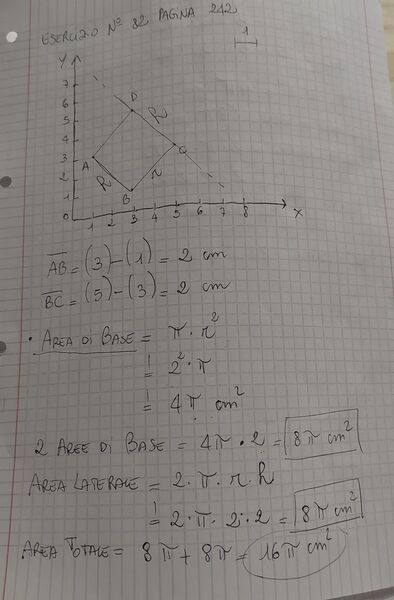 ESERCIZIO Nº 32 PAGINA 242
1
Y
7
6
5
4
3
2
1
0
D
R
C
A
R
r
B
1 2 3 4 5 6 7 8
X
AB = (3) - (1) = 2 cm
BC = (5) - (3) = 2 cm
• AREA DI BASE = π · r²
= 2² · π
= 4π cm²
2 AREE DI BASE = 4π · 2 = 8π cm²
AREA LATERALE = 2 · π · r · h
= 2 · π · 2 · 2 = 8π cm²
AREA TOTALE = 8π + 8π = 16π cm²